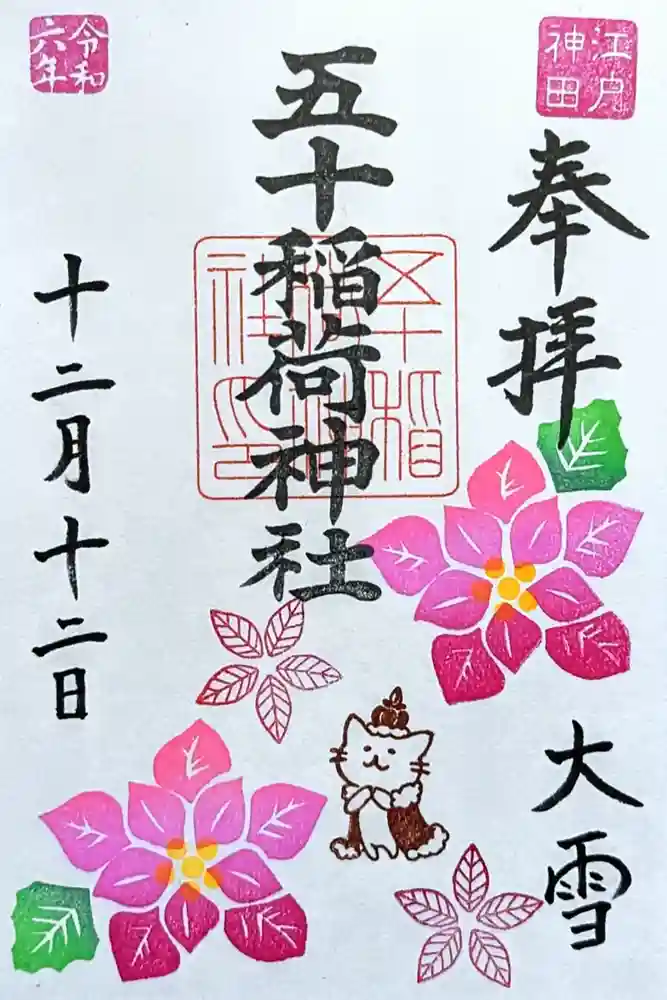 江戸
神田
奉拝
大雪
五十稲荷神社
五十稲
荷神
社之印
令和
六年
十二月十二日